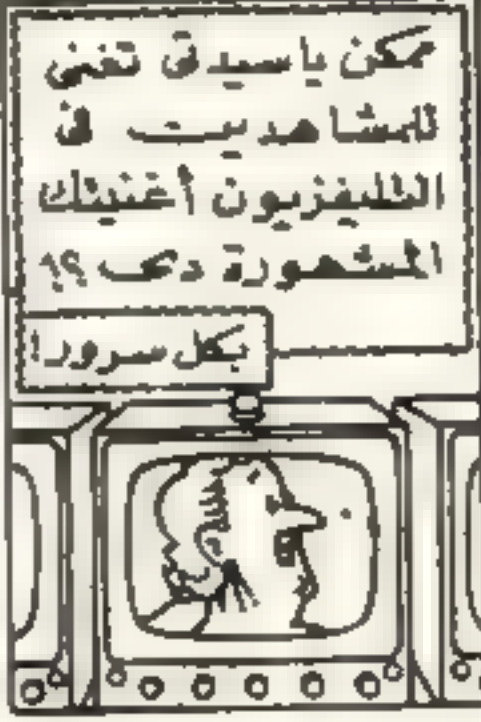 ممكن ياسيدتى تغنى
للمشاهدين فى
التليفزيون أغنيتك
المشهورة دى ؟!
بكل سرور!